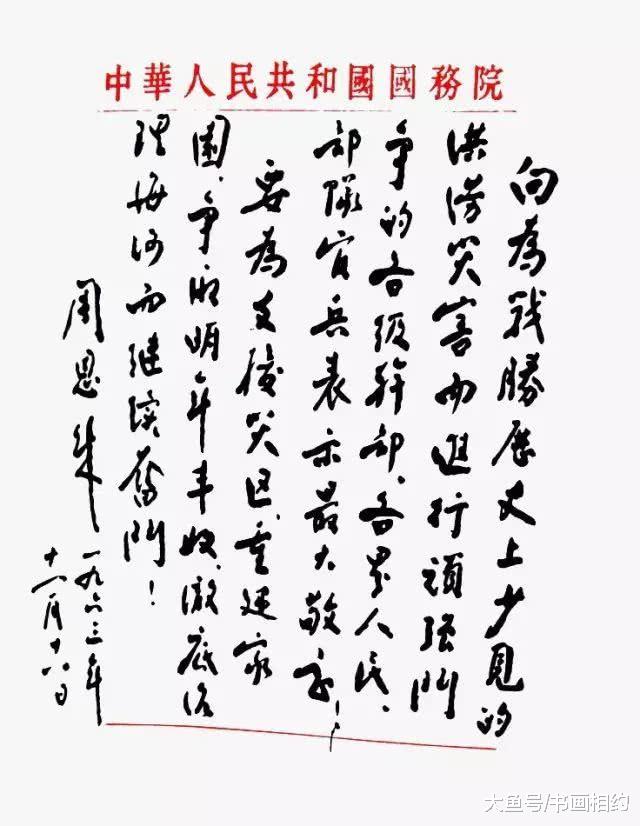 中華人民共和國國務院
向為戰勝歷史上少見的
洪澇災害而進行頑强鬥
争的各级幹部、各界人民、
部隊官兵表示最大敬意！
要為支援災区、重建家
園、争取明年丰收、澈底治
理海河而继续奮鬥！
周恩来
一九六三年
十一月十八日
大鱼号/书画相约